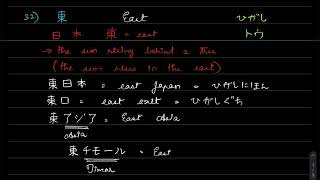 32) 東 East ひがし
日 木 東 = east トウ
→ the sun rising behind a tree
(the sun rises in the east)
東日本 = east Japan = ひがしにほん
東口 = east exit = ひがしぐち
東アジア = East Asia
Asia
東チモール = East
Timor